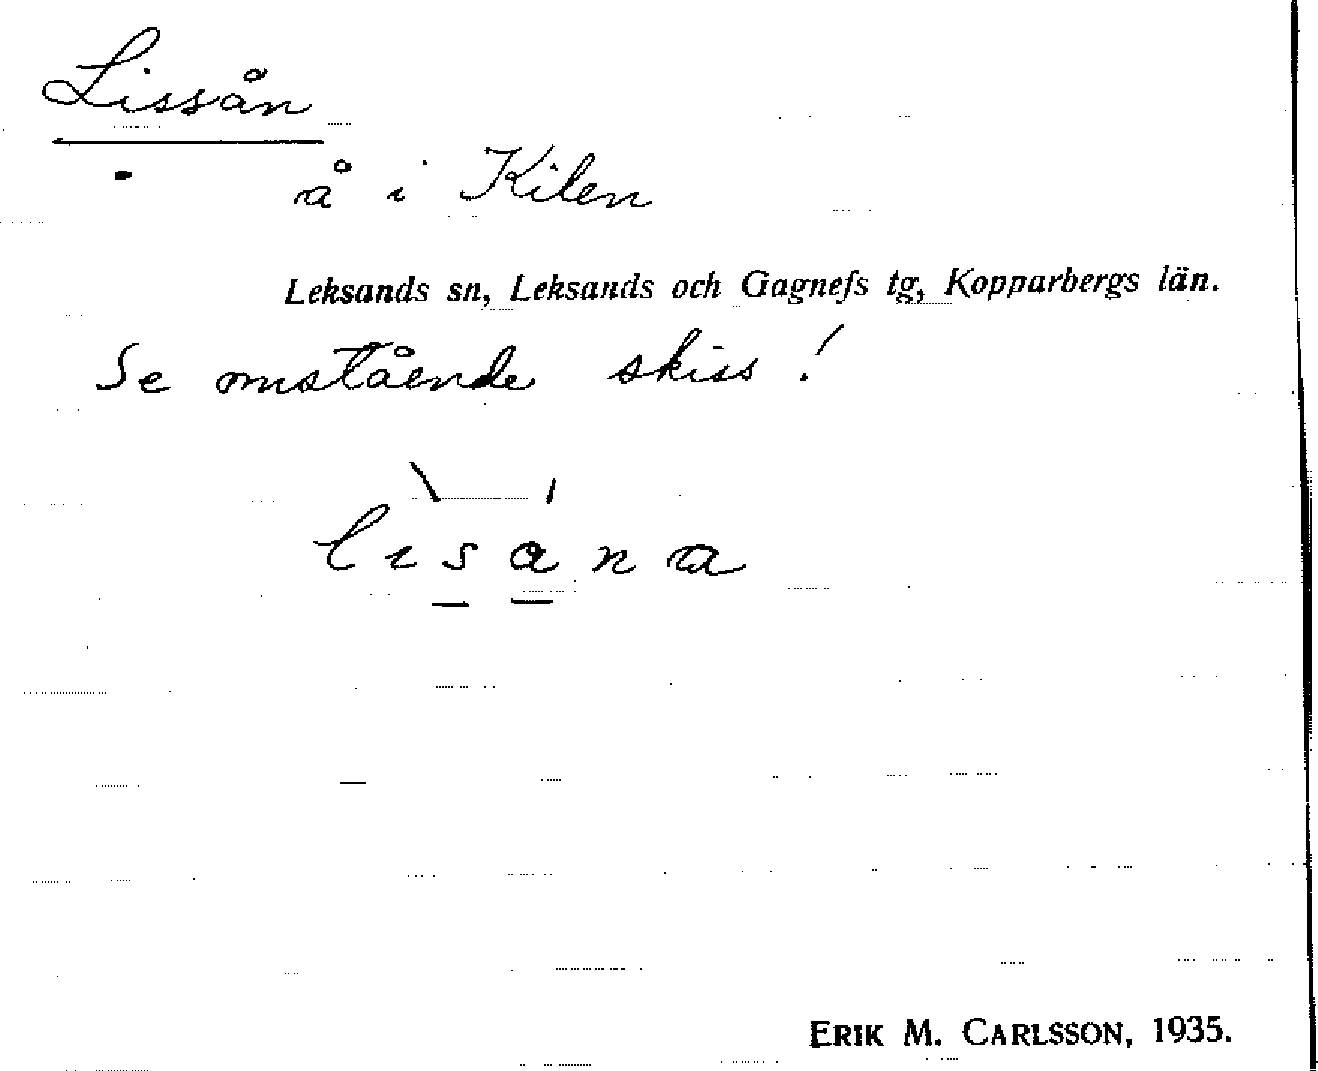 Lissån
å i Kilen
Leksands sn, Leksands och Gagnefs tg, Kopparbergs län.
Se omstående skiss!
lisana
ERIK M. CARLSSON, 1935.